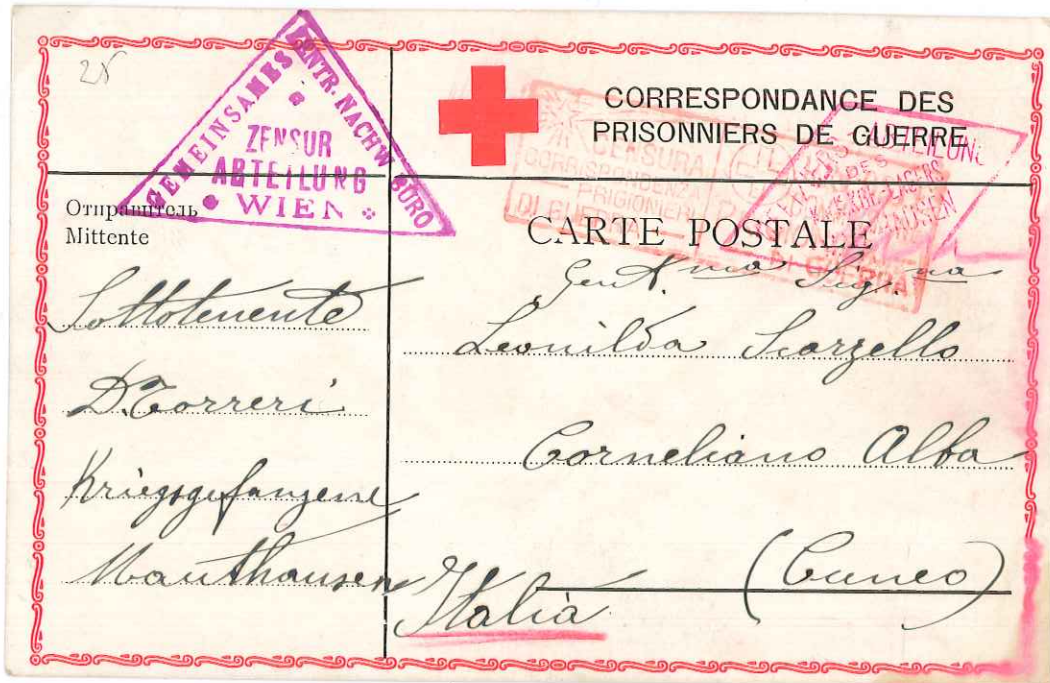 25
GEMEINSAMES ZENTR. NACHW. BÜRO
ZENSUR
ABTEILUNG
WIEN
CORRESPONDANCE DES
PRISONNIERS DE GUERRE
CENSURA
CORRISPONDENZA
PRIGIONIERI
DI GUERRA
DES
DI GUERRA
CARTE POSTALE
Отправитель
Mittente
Sottotenente
D. Torreri
Kriegsgefangene
Mauthausen
Gent.ma Sig.na
Leonilda Scarzello
Corneliano Alba
(Cuneo)
Italia